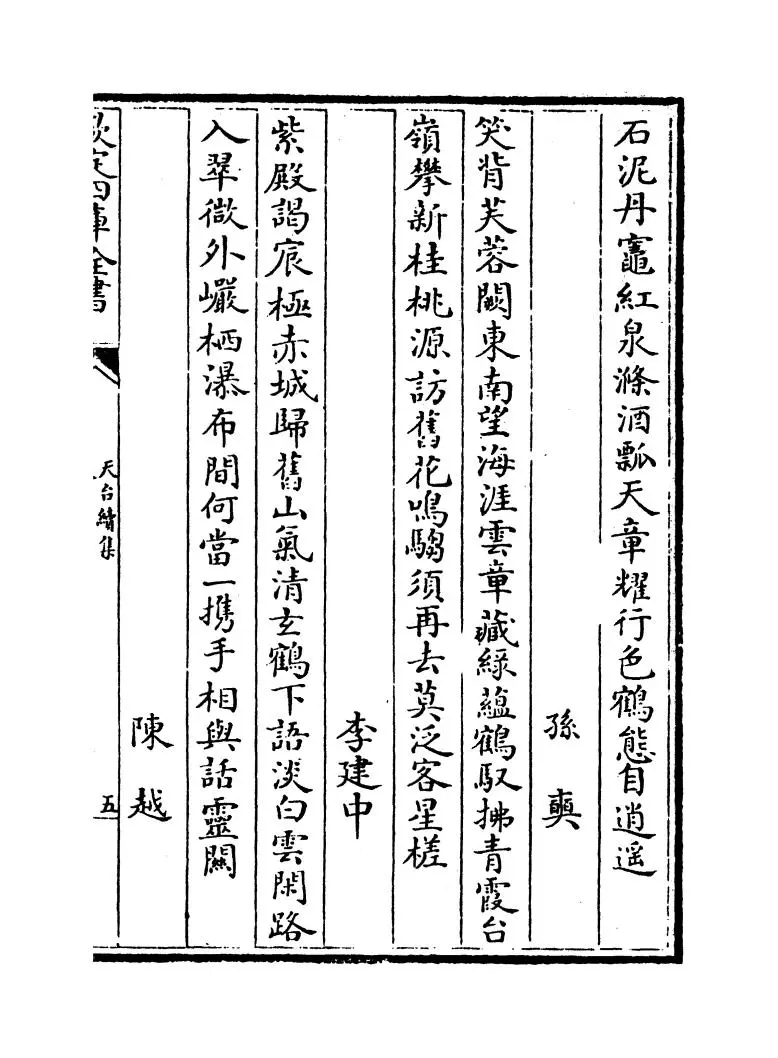 石泥丹竈紅泉滌酒瓢天章耀行色鶴態自逍遥
孫奭
笑背芙蓉闕東南望海涯雲章藏綠蘊鶴馭拂青霞台
嶺攀新桂桃源訪舊花鳴騶須再去莫泛客星槎
李建中
紫殿謁宸極赤城歸舊山氣清玄鶴下語淡白雲閑路
入翠微外巖栖瀑布間何當一携手相與話靈關
陳越
欽定四庫全書
天台續集
五